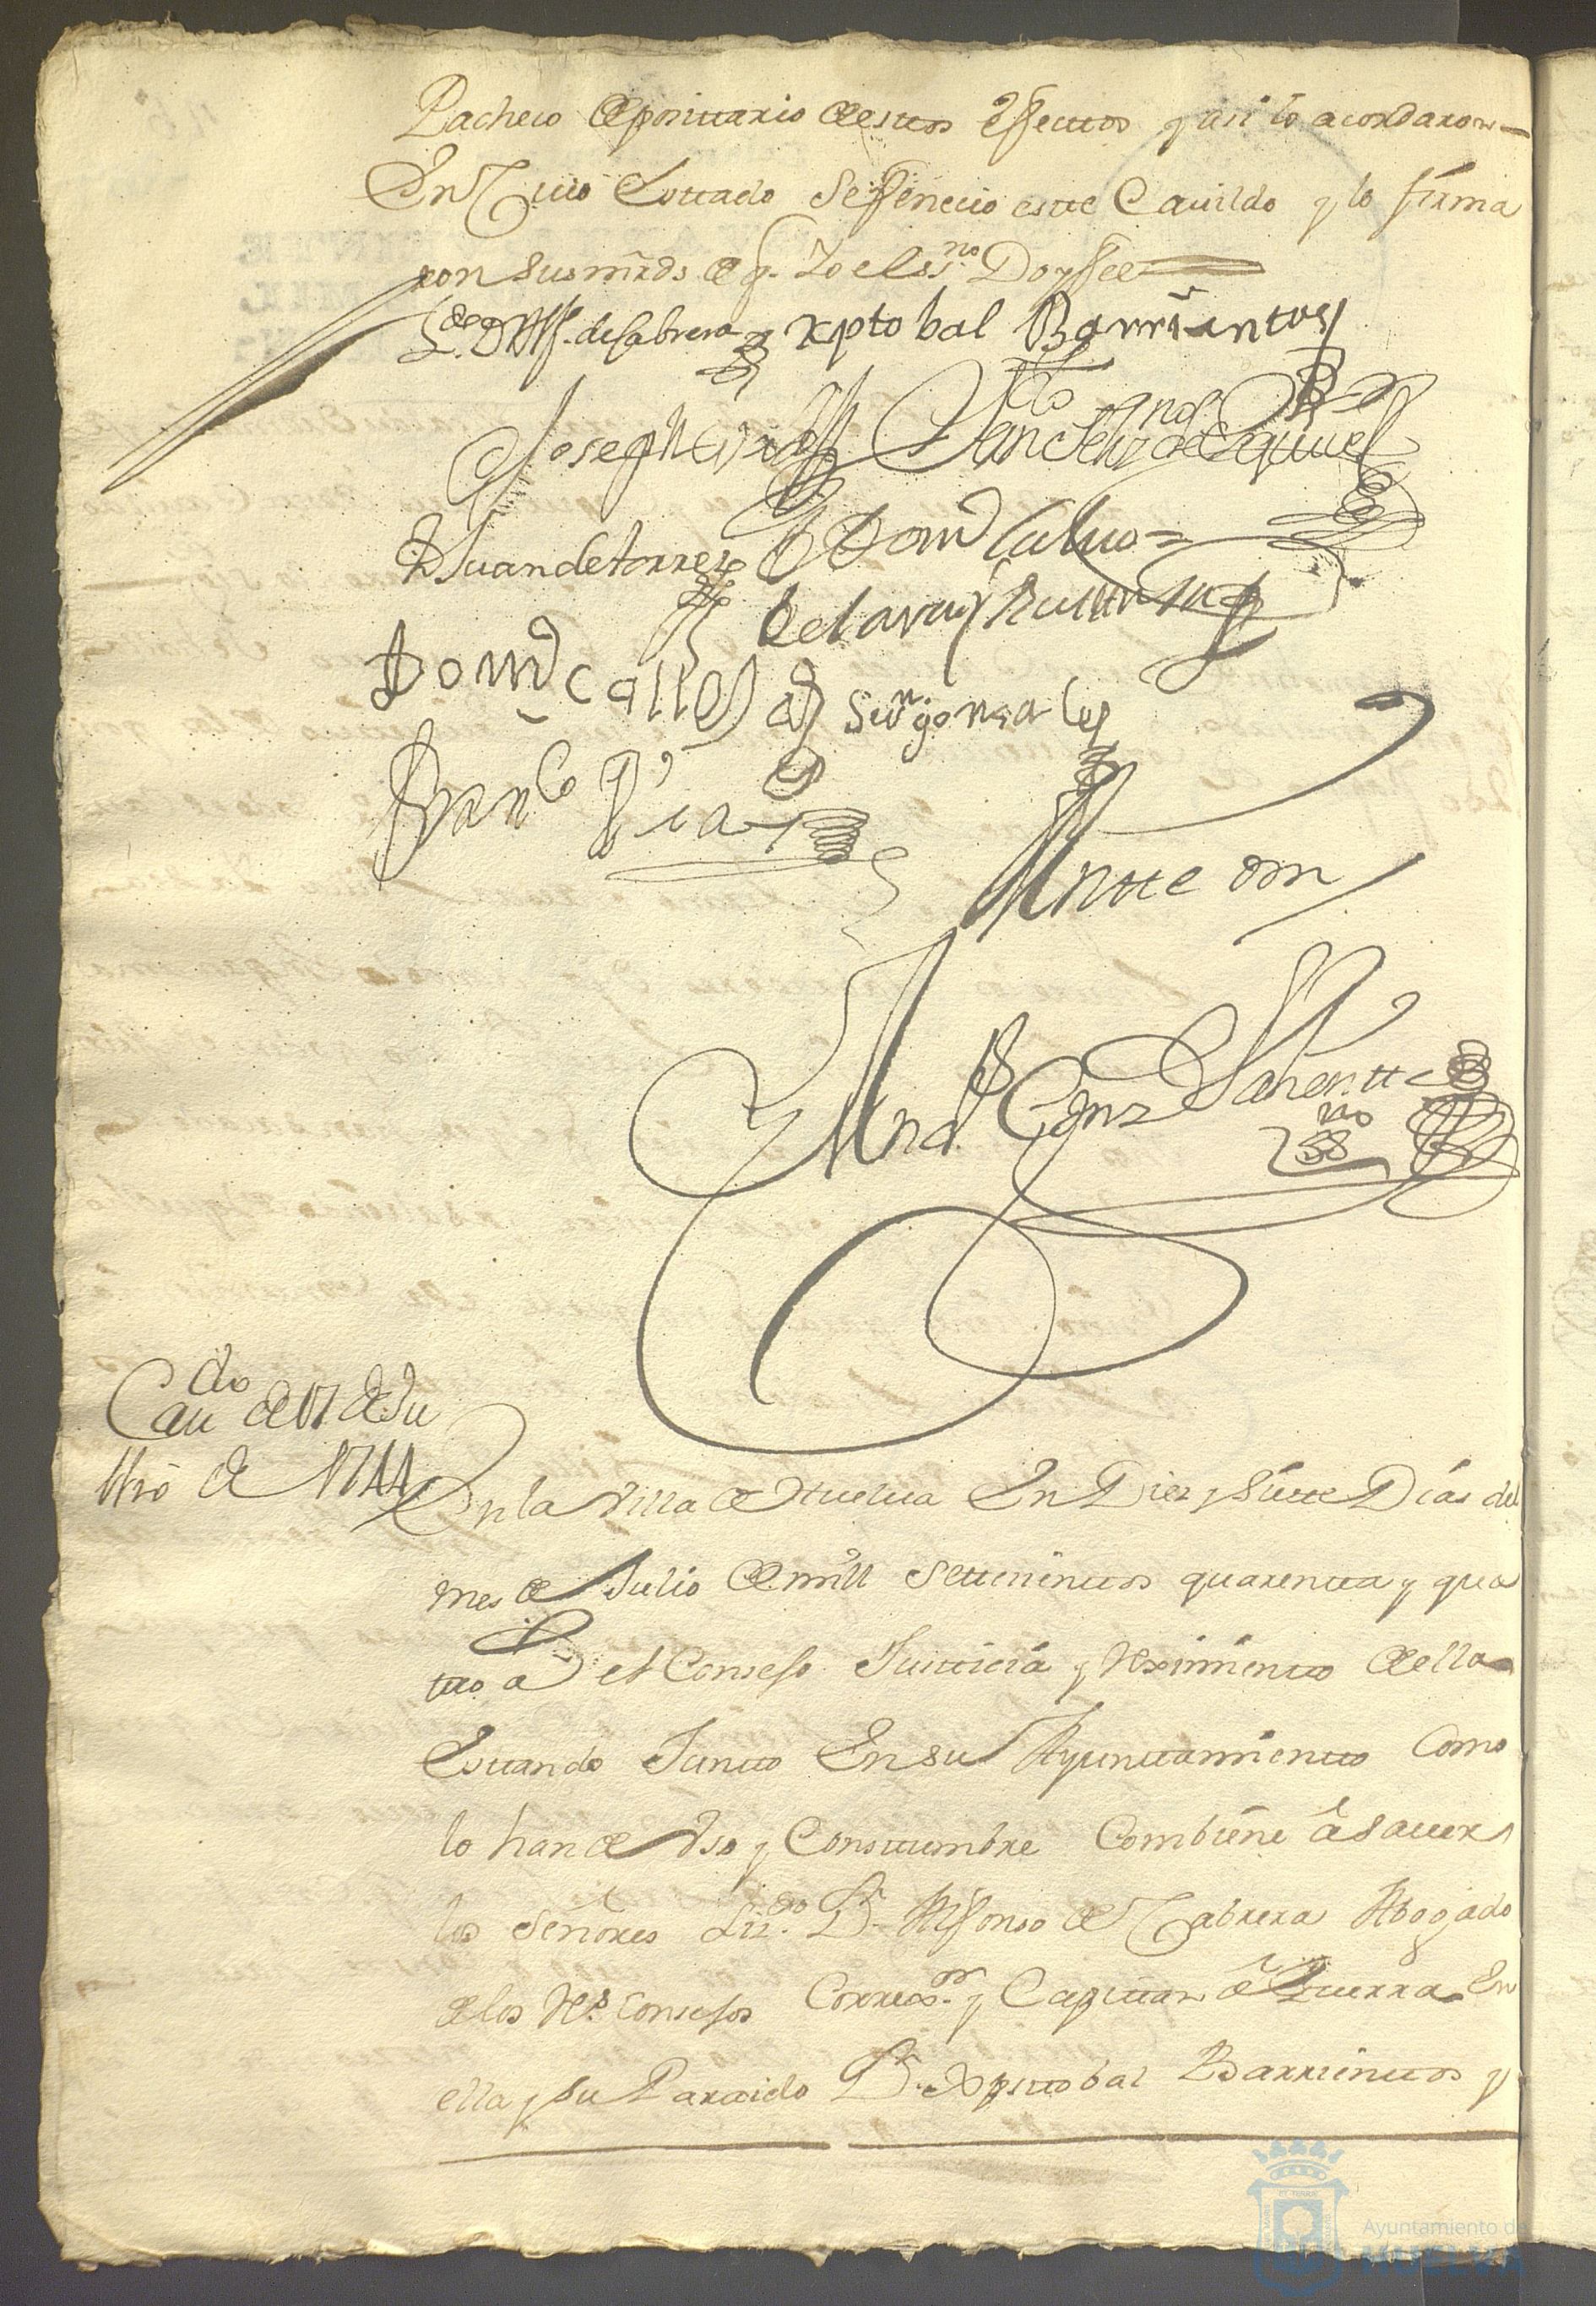 Pacheco depositario destos Effectos y asi lo acordaron
En Cuio Esttado Se fenecio este Cavildo y lo firma
ron sus mrds de q. Yo el Ssno. Doy fee
Ldo. Dn. Alf. de Cabrera xptobal Barrientos
Joseph
Franco Sanz de Esquivel
Juan de torres Domo Calvo
de la
Domo calles sevn gonsales
Franco Dias
Antte mi
And. Genz Lla
sno
Cavdo de 17 de Ju
llio de 1744
En la Villa de Huelva En Diez y Siette Dias del
mes de Julio de mill Settecientos quarenta y qua
ttro a el Consejo Justticia y Reximiento de ella
Estando Juntto En su Ayuntamiento Como
lo han de Uso y Costtumbre Combiene a saver
los Señores Lizdo. Dn. Alfonso de Cabrera Abogado
de los Rs. Consejos Correxor. y Capittan a Guerra En
ella y su Partido Dn. Xpttobal Barrienttos y
Ayuntamiento de
HUELVA